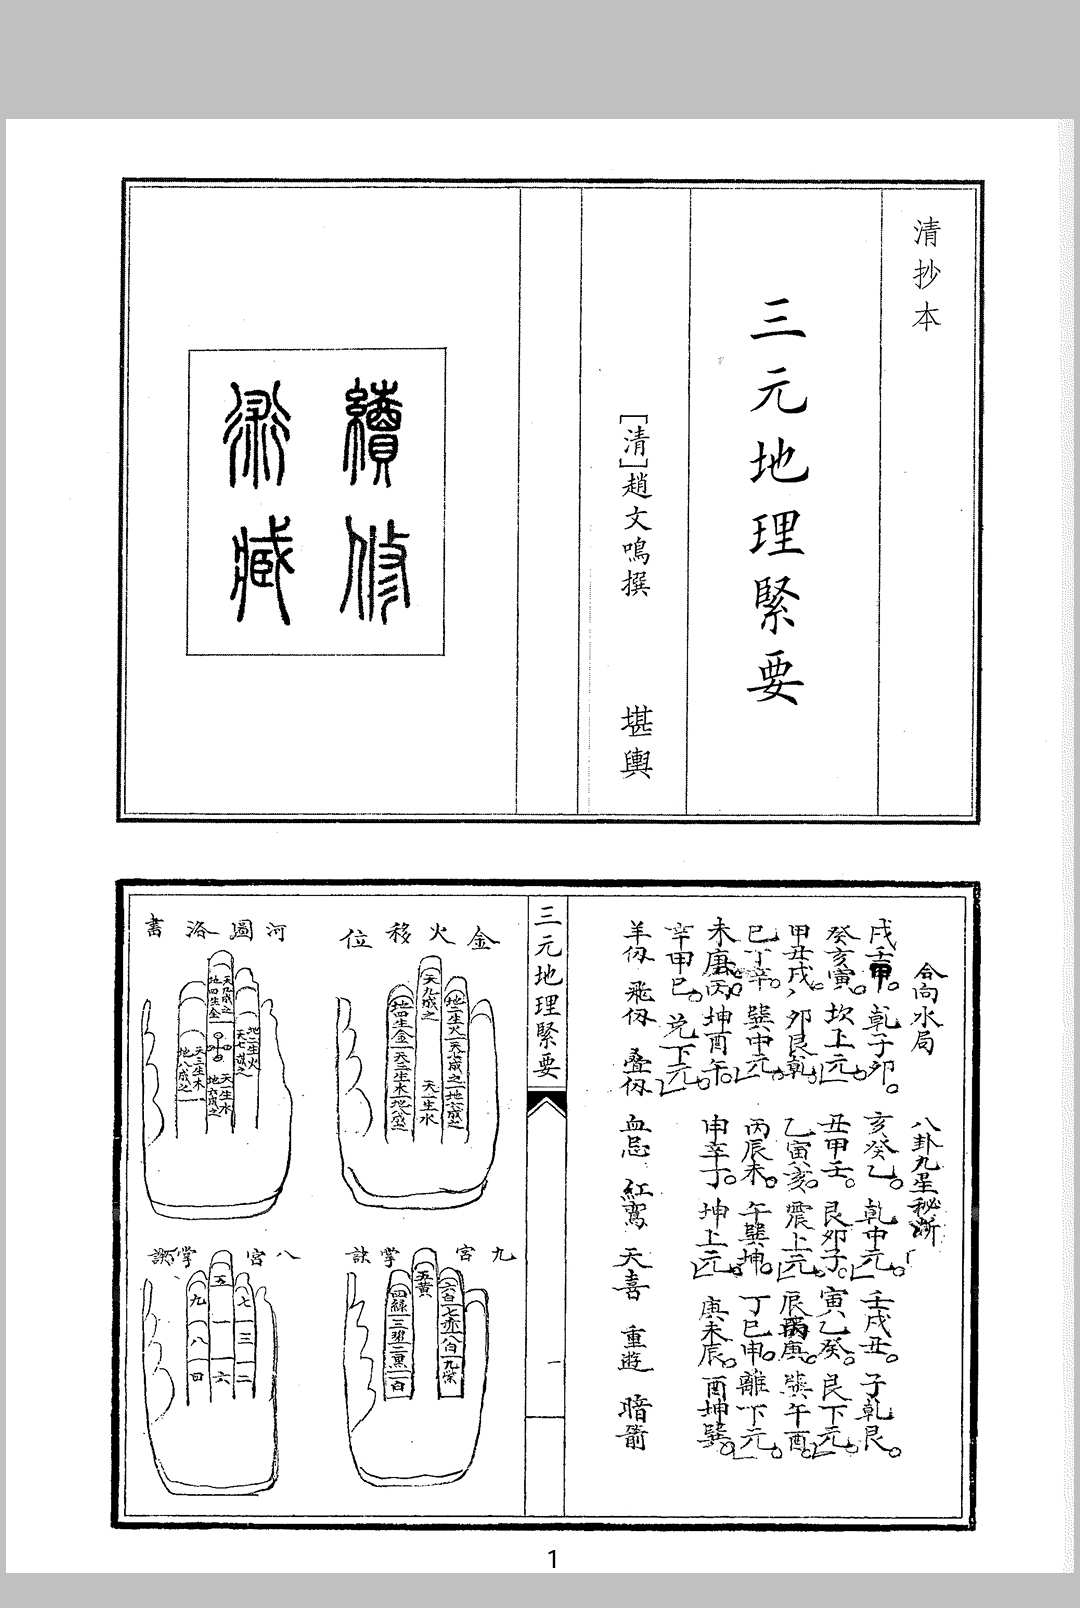 清抄本
三元地理緊要
[清]趙文鳴撰 堪輿
續修
術藏
合向水局 八卦九星秘
戌壬 乾子卯 亥癸乙 乾中元 壬戌丑 子乾艮
癸亥寅 坎上元 丑甲壬 艮卯子 寅乙癸 艮下元
甲丑戌 卯艮乾 乙寅亥 震上元 辰丙庚 巽午酉
巳丁辛 巽中元 丙辰未 午巽坤 丁巳申 離下元
未庚丙 坤酉午 申辛丁 坤上元 庚未辰 酉坤巽
辛甲巳 兌下元
羊刃 飛刃 叠刃 血忌 紅鸞 天喜 重遊 暗箭
三元地理緊要
一
金火移位
地二生火
天七成之
地六成之
天九成之
天一生水
地四生金
天三生木
地八成之
河圖洛書
地二生火
天七成之
天九成之
地四生金
天一生水
地六成之
天三生木
地八成之
九宮掌訣
六白
七赤
八白
九紫
五黄
四綠
三碧
二黑
一白
八宮掌訣
七
三
二
五
一
六
九
八
四
1